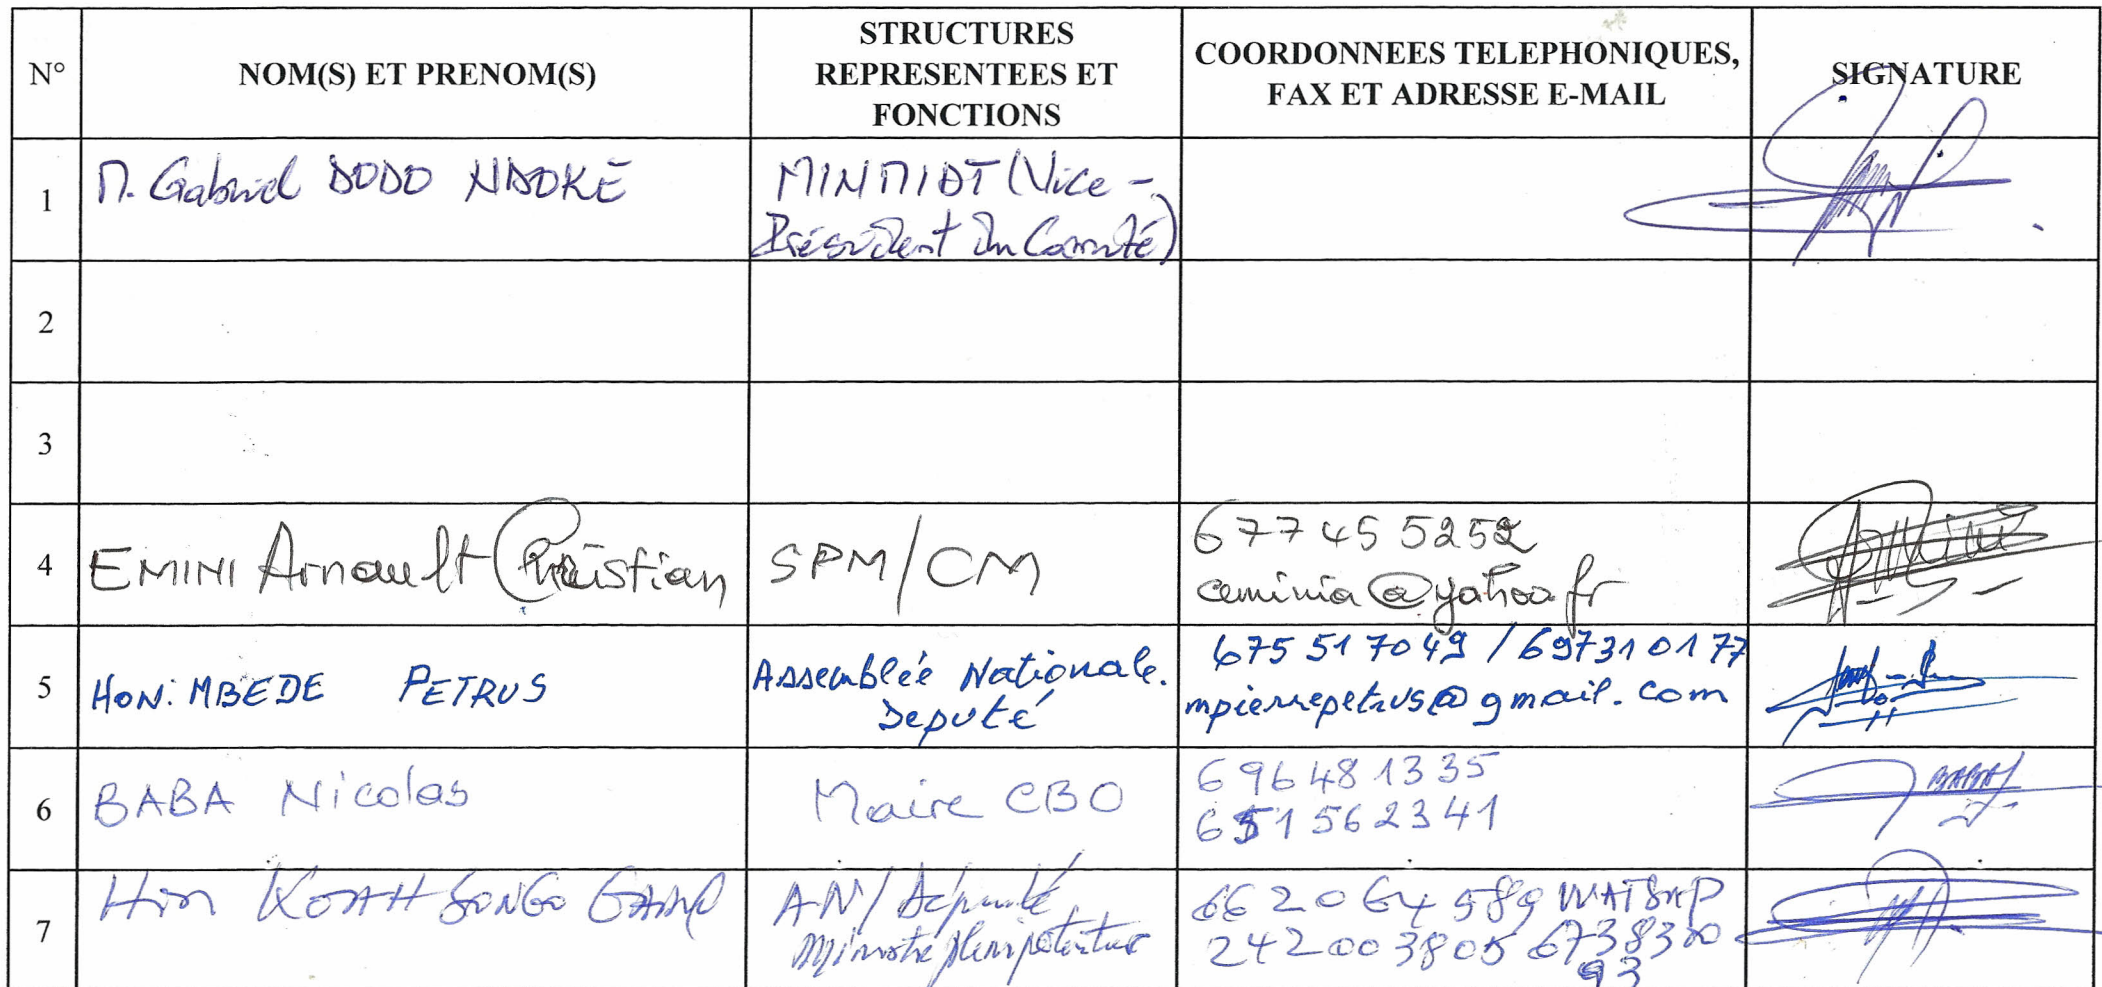 N°
NOM(S) ET PRENOM(S)
STRUCTURES
REPRESENTEES ET
FONCTIONS
COORDONNEES TELEPHONIQUES,
FAX ET ADRESSE E-MAIL
SIGNATURE
1
M. Gabriel DODO NDOKE
MINMIDT (Vice-
Président du Comité)
2
3
4
EMINI Arnault Christian
SPM/CM
677 45 5252
ceminia@yahoo.fr
5
HON. MBEDE PETRUS
Assemblée Nationale.
Député
675 51 70 49 / 697310177
mpierrepetrus@gmail.com
6
BABA Nicolas
Maire CBO
696481335
651562341
BABA
7
Hon KOAH SONGO
AN/ Député
Ministre plenipotentiaire
662064589 WATSAP
242003805 6738380
93